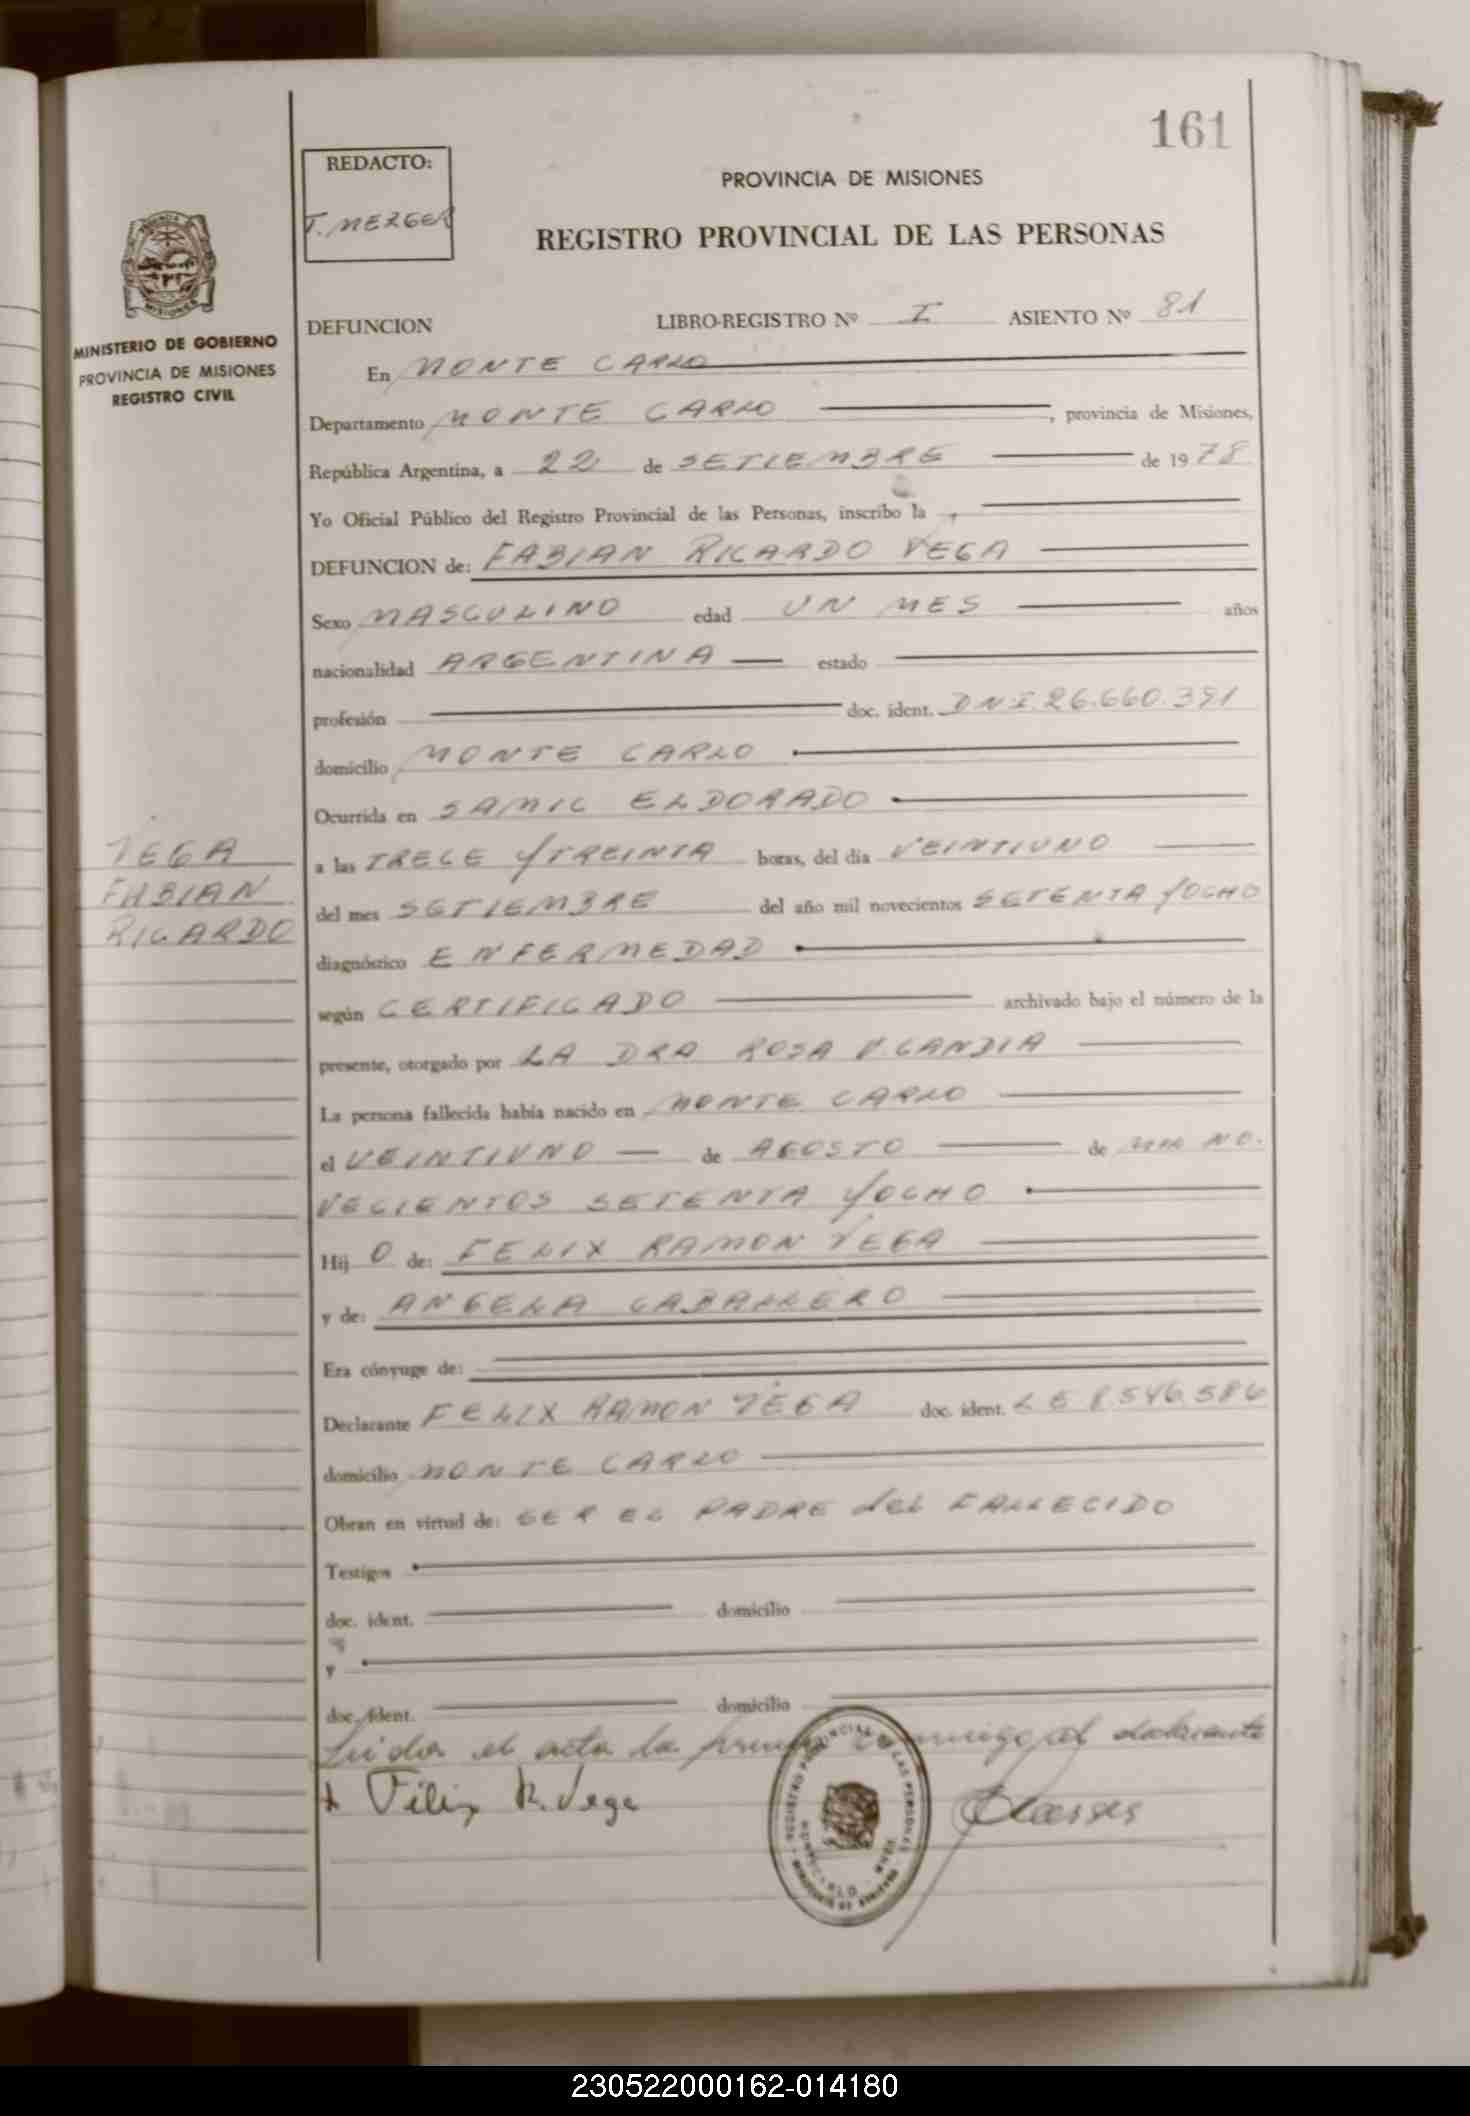 161
REDACTO:
T. MEZGER
PROVINCIA DE MISIONES
REGISTRO PROVINCIAL DE LAS PERSONAS
MISIONES
MINISTERIO DE GOBIERNO
PROVINCIA DE MISIONES
REGISTRO CIVIL
DEFUNCION LIBRO-REGISTRO Nº I ASIENTO Nº 81
En MONTE CARLO
Departamento MONTE CARLO, provincia de Misiones,
República Argentina, a 22 de SETIEMBRE de 1978
Yo Oficial Público del Registro Provincial de las Personas, inscribo la
DEFUNCION de: FABIAN RICARDO VEGA
Sexo MASCULINO edad UN MES años
nacionalidad ARGENTINA estado
profesión doc. ident. DNI. 26.660.391
domicilio MONTE CARLO
Ocurrida en SAMIC ELDORADO
VEGA
FABIAN
RICARDO
a las TRECE Y TREINTA horas, del día VEINTIUNO
del mes SETIEMBRE del año mil novecientos SETENTA Y OCHO
diagnóstico ENFERMEDAD
según CERTIFICADO archivado bajo el número de la
presente, otorgado por LA DRA ROSA V. CANDIA
La persona fallecida había nacido en MONTE CARLO
el VEINTIUNO de AGOSTO de MIL NO.
VECIENTOS SETENTA Y OCHO
Hij O de: FELIX RAMON VEGA
y de: ANGELA CABALLERO
Era cónyuge de:
Declarante FELIX RAMON VEGA doc. ident. LE 8.546.586
domicilio MONTE CARLO
Obran en virtud de: SER EL PADRE del FALLECIDO
Testigos
doc. ident. domicilio
y
doc. ident. domicilio
Leida el acta la firma conmigo el declarante
Félix R. Vega
REGISTRO PROVINCIAL DE LAS PERSONAS
230522000162-014180